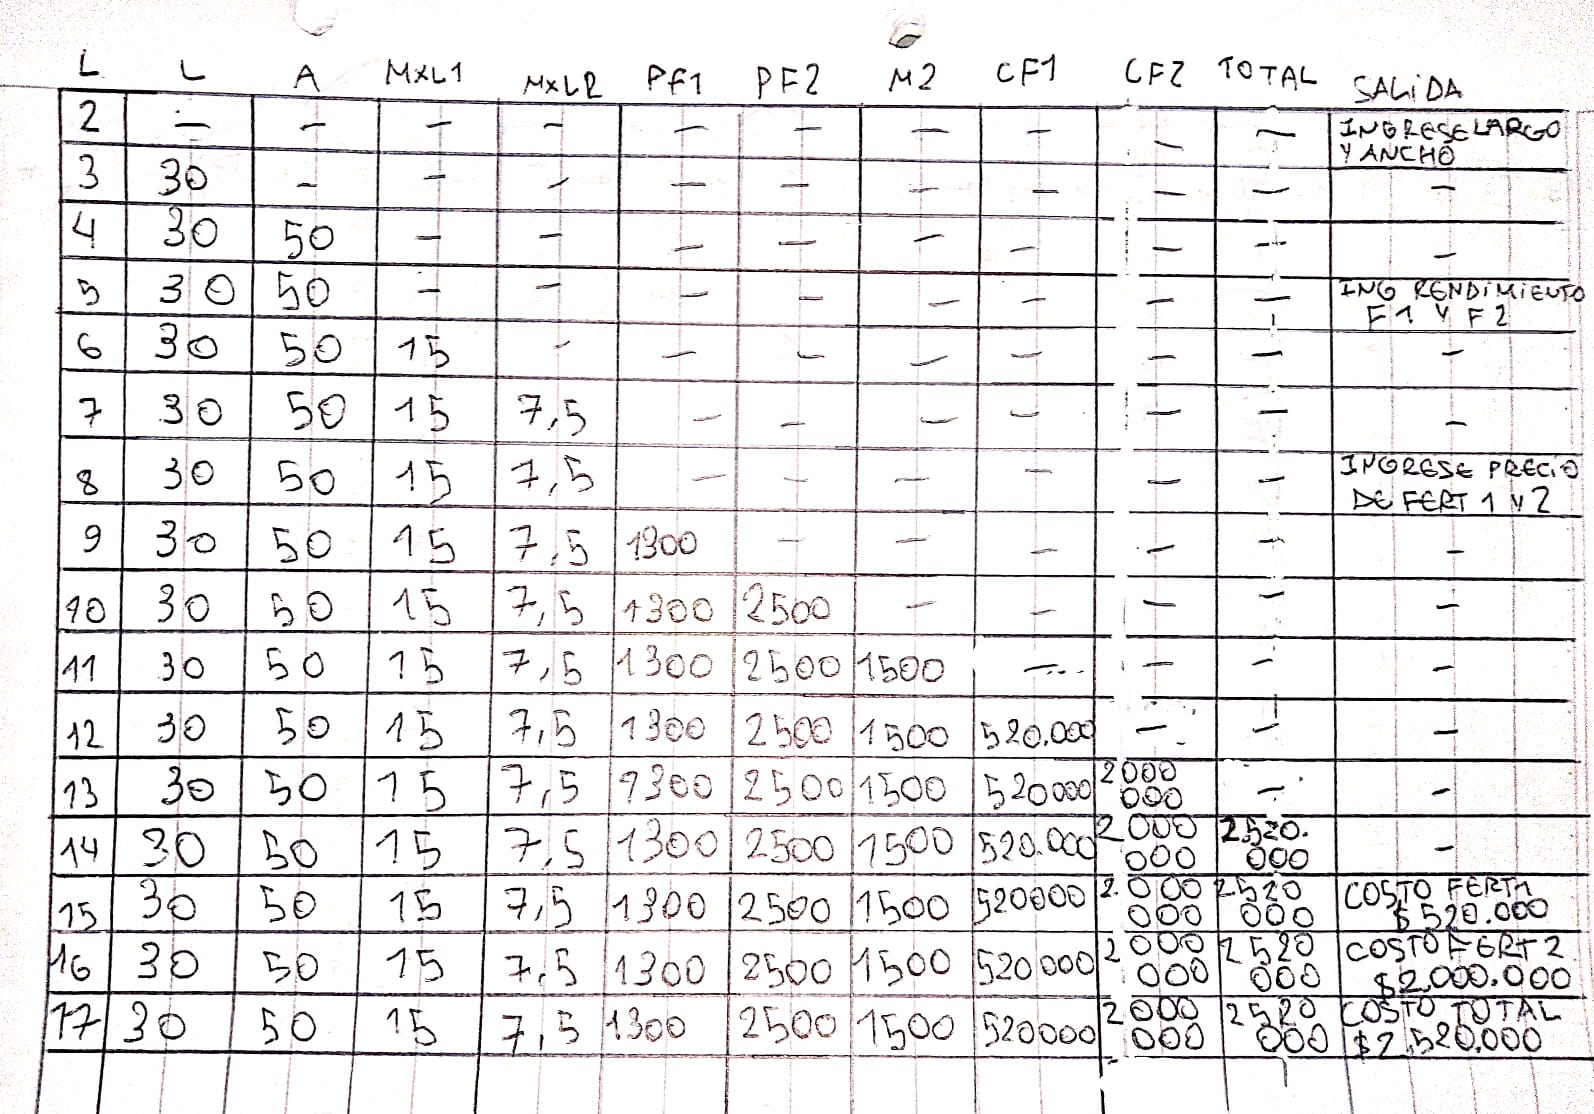 L L A MxL1 MxL2 PF1 PF2 M2 CF1 CF2 TOTAL SALIDA
2 — — — — — — — — — — INGRESE LARGO
Y ANCHO
3 30 — — — — — — — — — —
4 30 50 — — — — — — — — —
5 30 50 — — — — — — — — ING RENDIMIENTO
F1 Y F2
6 30 50 15 — — — — — — — —
7 30 50 15 7,5 — — — — — — —
8 30 50 15 7,5 — — — — — — INGRESE PRECIO
DE FERT 1 Y 2
9 30 50 15 7,5 1300 — — — — — —
10 30 50 15 7,5 1300 2500 — — — — —
11 30 50 15 7,5 1300 2500 1500 — — — —
12 30 50 15 7,5 1300 2500 1500 520.000 — — —
13 30 50 15 7,5 1300 2500 1500 520000 2000 — —
000
14 30 50 15 7,5 1300 2500 1500 520.000 2000 2520. —
000 000
15 30 50 15 7,5 1300 2500 1500 520000 2.000 2520 COSTO FERT1
000 000 $520.000
16 30 50 15 7,5 1300 2500 1500 520000 2000 2520 COSTO FERT 2
000 000 $2.000.000
17 30 50 15 7,5 1300 2500 1500 520000 2000 2520 COSTO TOTAL
000 000 $2.520.000